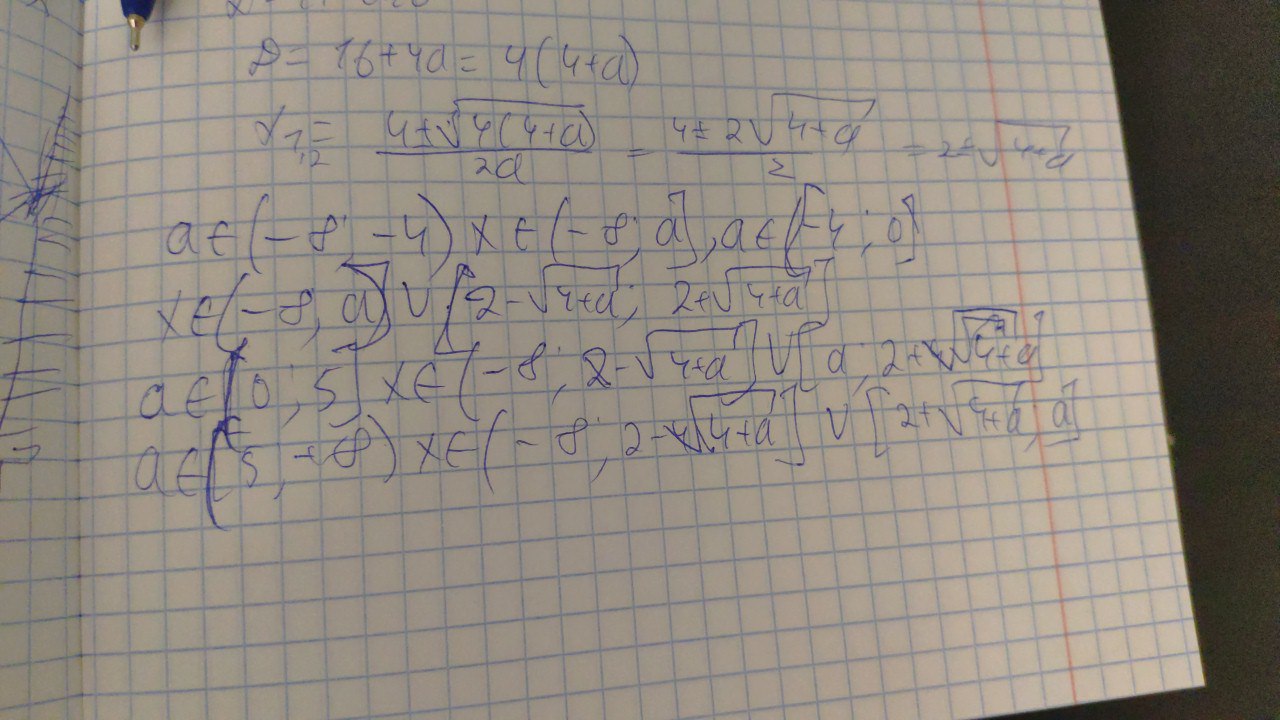 D = 16+4a = 4(4+a)
x₁,₂ = (4±√(4(4+a)))/(2a) = (4±2√(4+a))/2 = 2±√(4+a)
a∈(-8; -4) x∈(-8; a], a∈[-4; 0]
x∈(-8; a] ∪ [2-√(4+a); 2+√(4+a)]
a∈[0; 5] x∈(-8; 2-√(4+a)] ∪ [a; 2+√(4+a)]
a∈(5; +8) x∈(-8; 2-√(4+a)] ∪ [2+√(4+a); a]